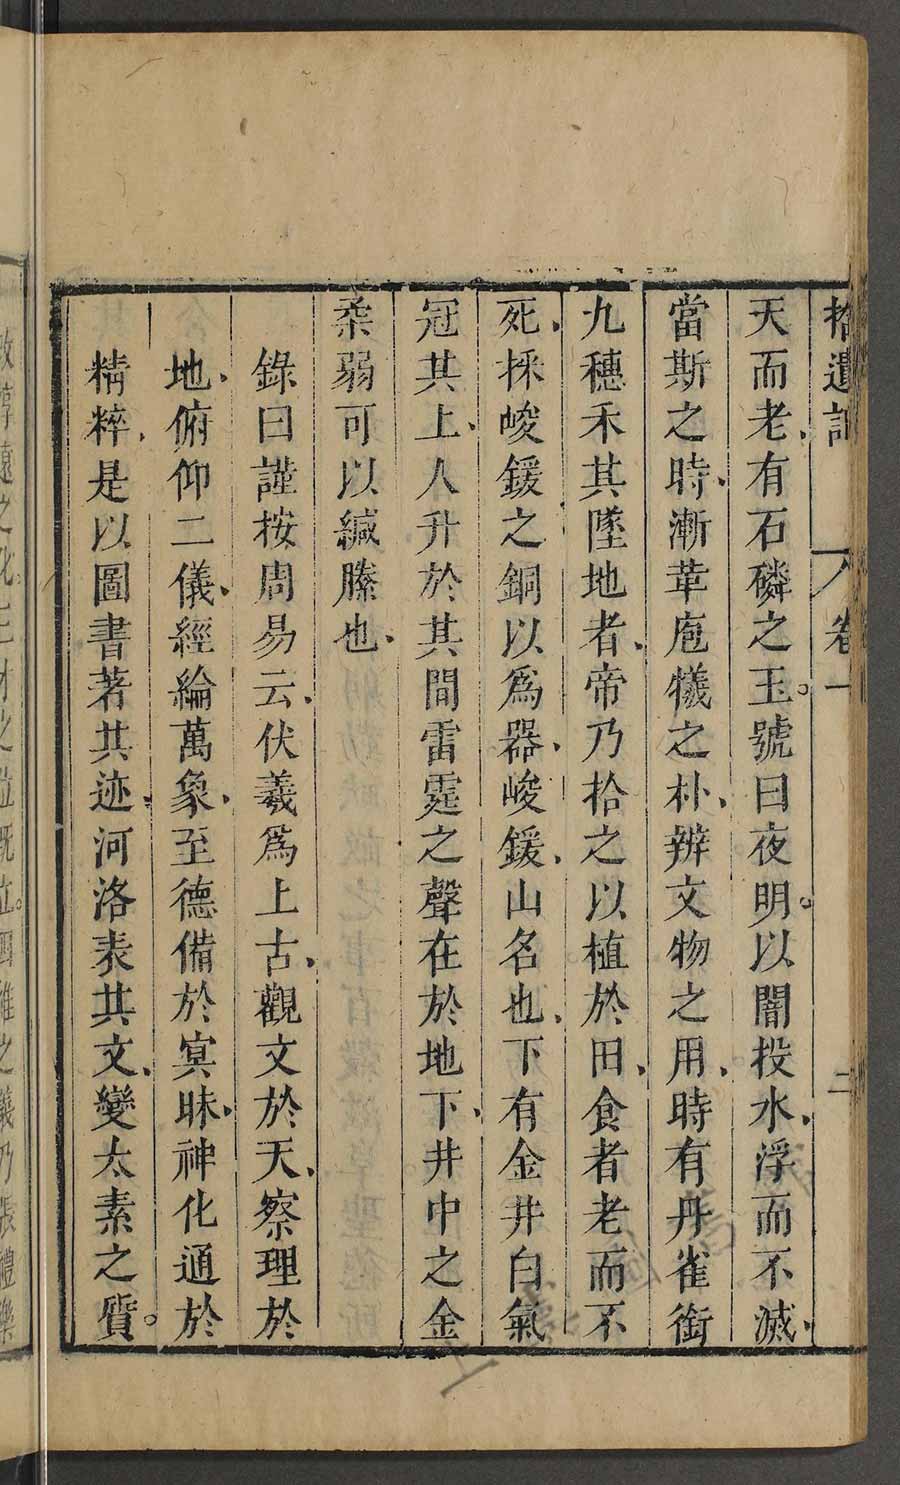 拾遺記　卷一　二
天而老、有石磷之玉。號曰夜明。以闇投水、浮而不滅、
當斯之時、漸革庖犧之朴、辨文物之用、時有丹雀銜
九穗禾其墜地者、帝乃拾之以植於田、食者老而不
死、採峻鍰之銅以爲器、峻鍰、山名也、下有金井白氣
冠其上、人升於其間雷霆之聲在於地下、井中之金
柔弱可以緘縢也、
錄曰謹按周易云、伏羲爲上古、觀文於天、察理於
地、俯仰二儀、經綸萬象、至德備於冥昧、神化通於
精粹、是以圖書著其迹、河洛表其文、變太素之質。